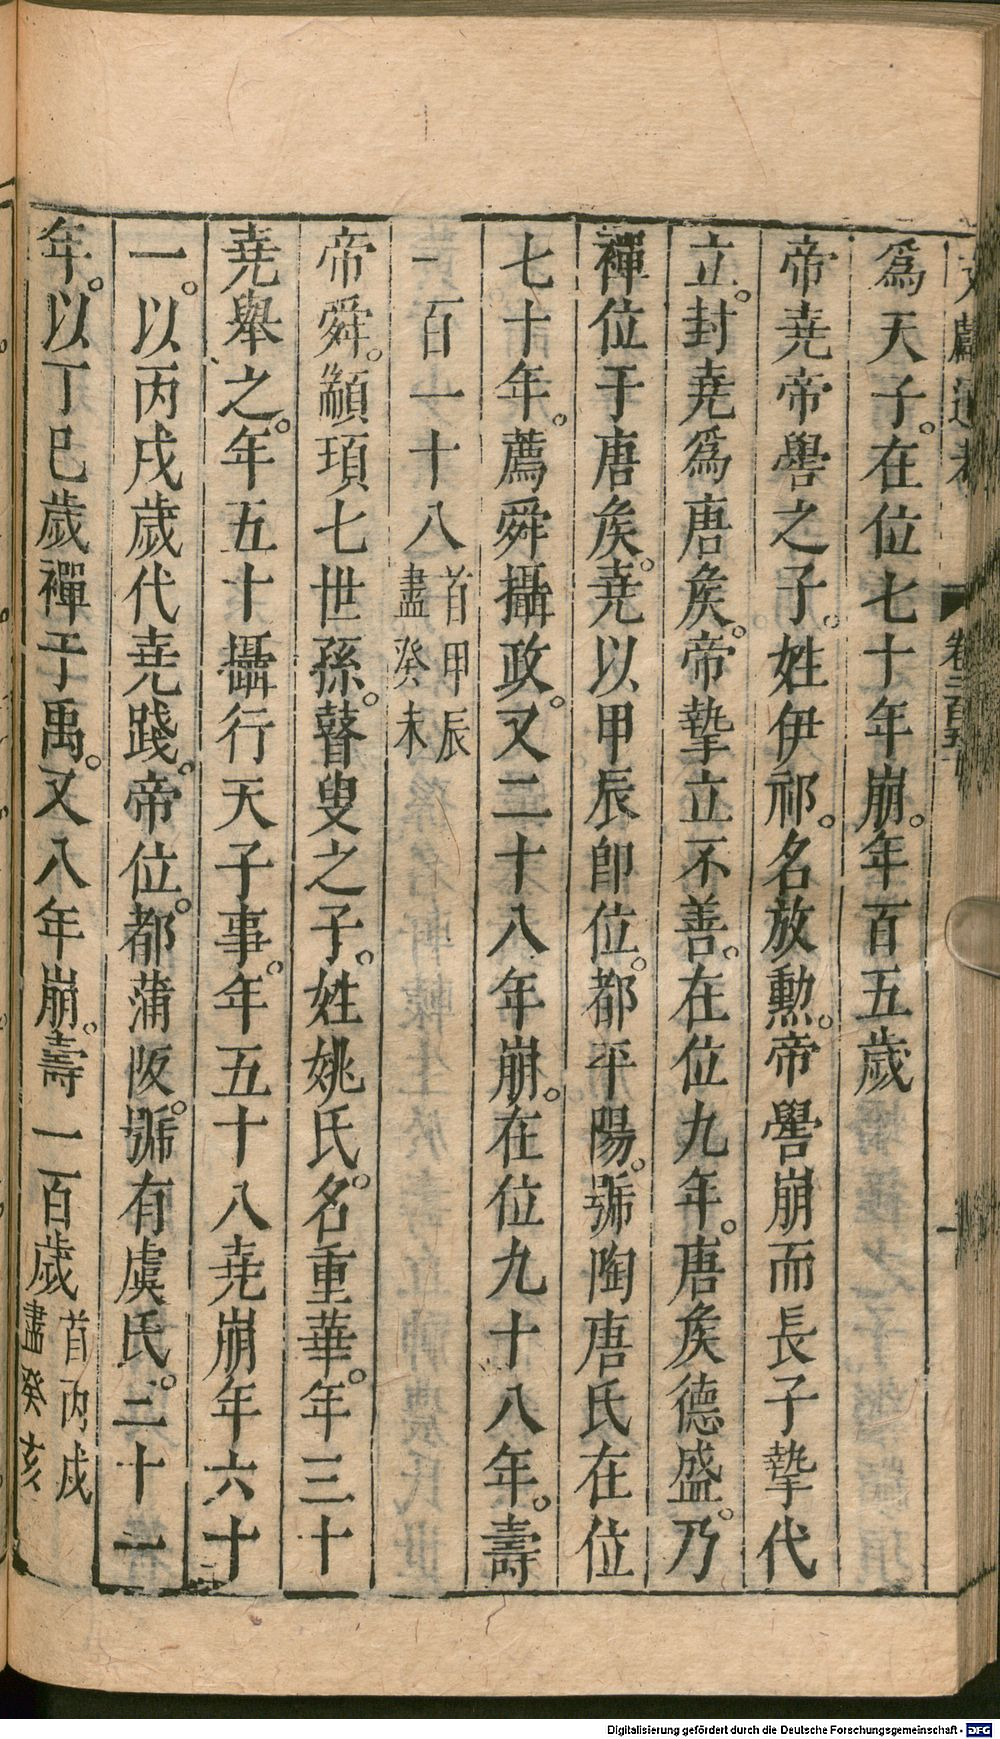 文獻通考
卷二百五十
爲天子。在位七十年崩。年百五歲
帝堯帝嚳之子。姓伊祁。名放勳。帝嚳崩而長子摯代
立。封堯爲唐矦。帝摯立不善。在位九年。唐矦德盛。乃
禪位于唐矦。堯以甲辰卽位。都平陽。號陶唐氏在位
七十年。薦舜攝政。又二十八年崩。在位九十八年。壽
一百一十八
首甲辰
盡癸未
帝舜。顓頊七世孫。瞽叟之子。姓姚氏。名重華。年三十
堯舉之。年五十攝行天子事。年五十八堯崩年六十
一。以丙戌歲代堯踐。帝位。都蒲阪。號有虞氏。三十二
年。以丁巳歲禪于禹。又八年崩。壽一百歲
首丙戌
盡癸亥
Digitalisierung gefördert durch die Deutsche Forschungsgemeinschaft - DFG